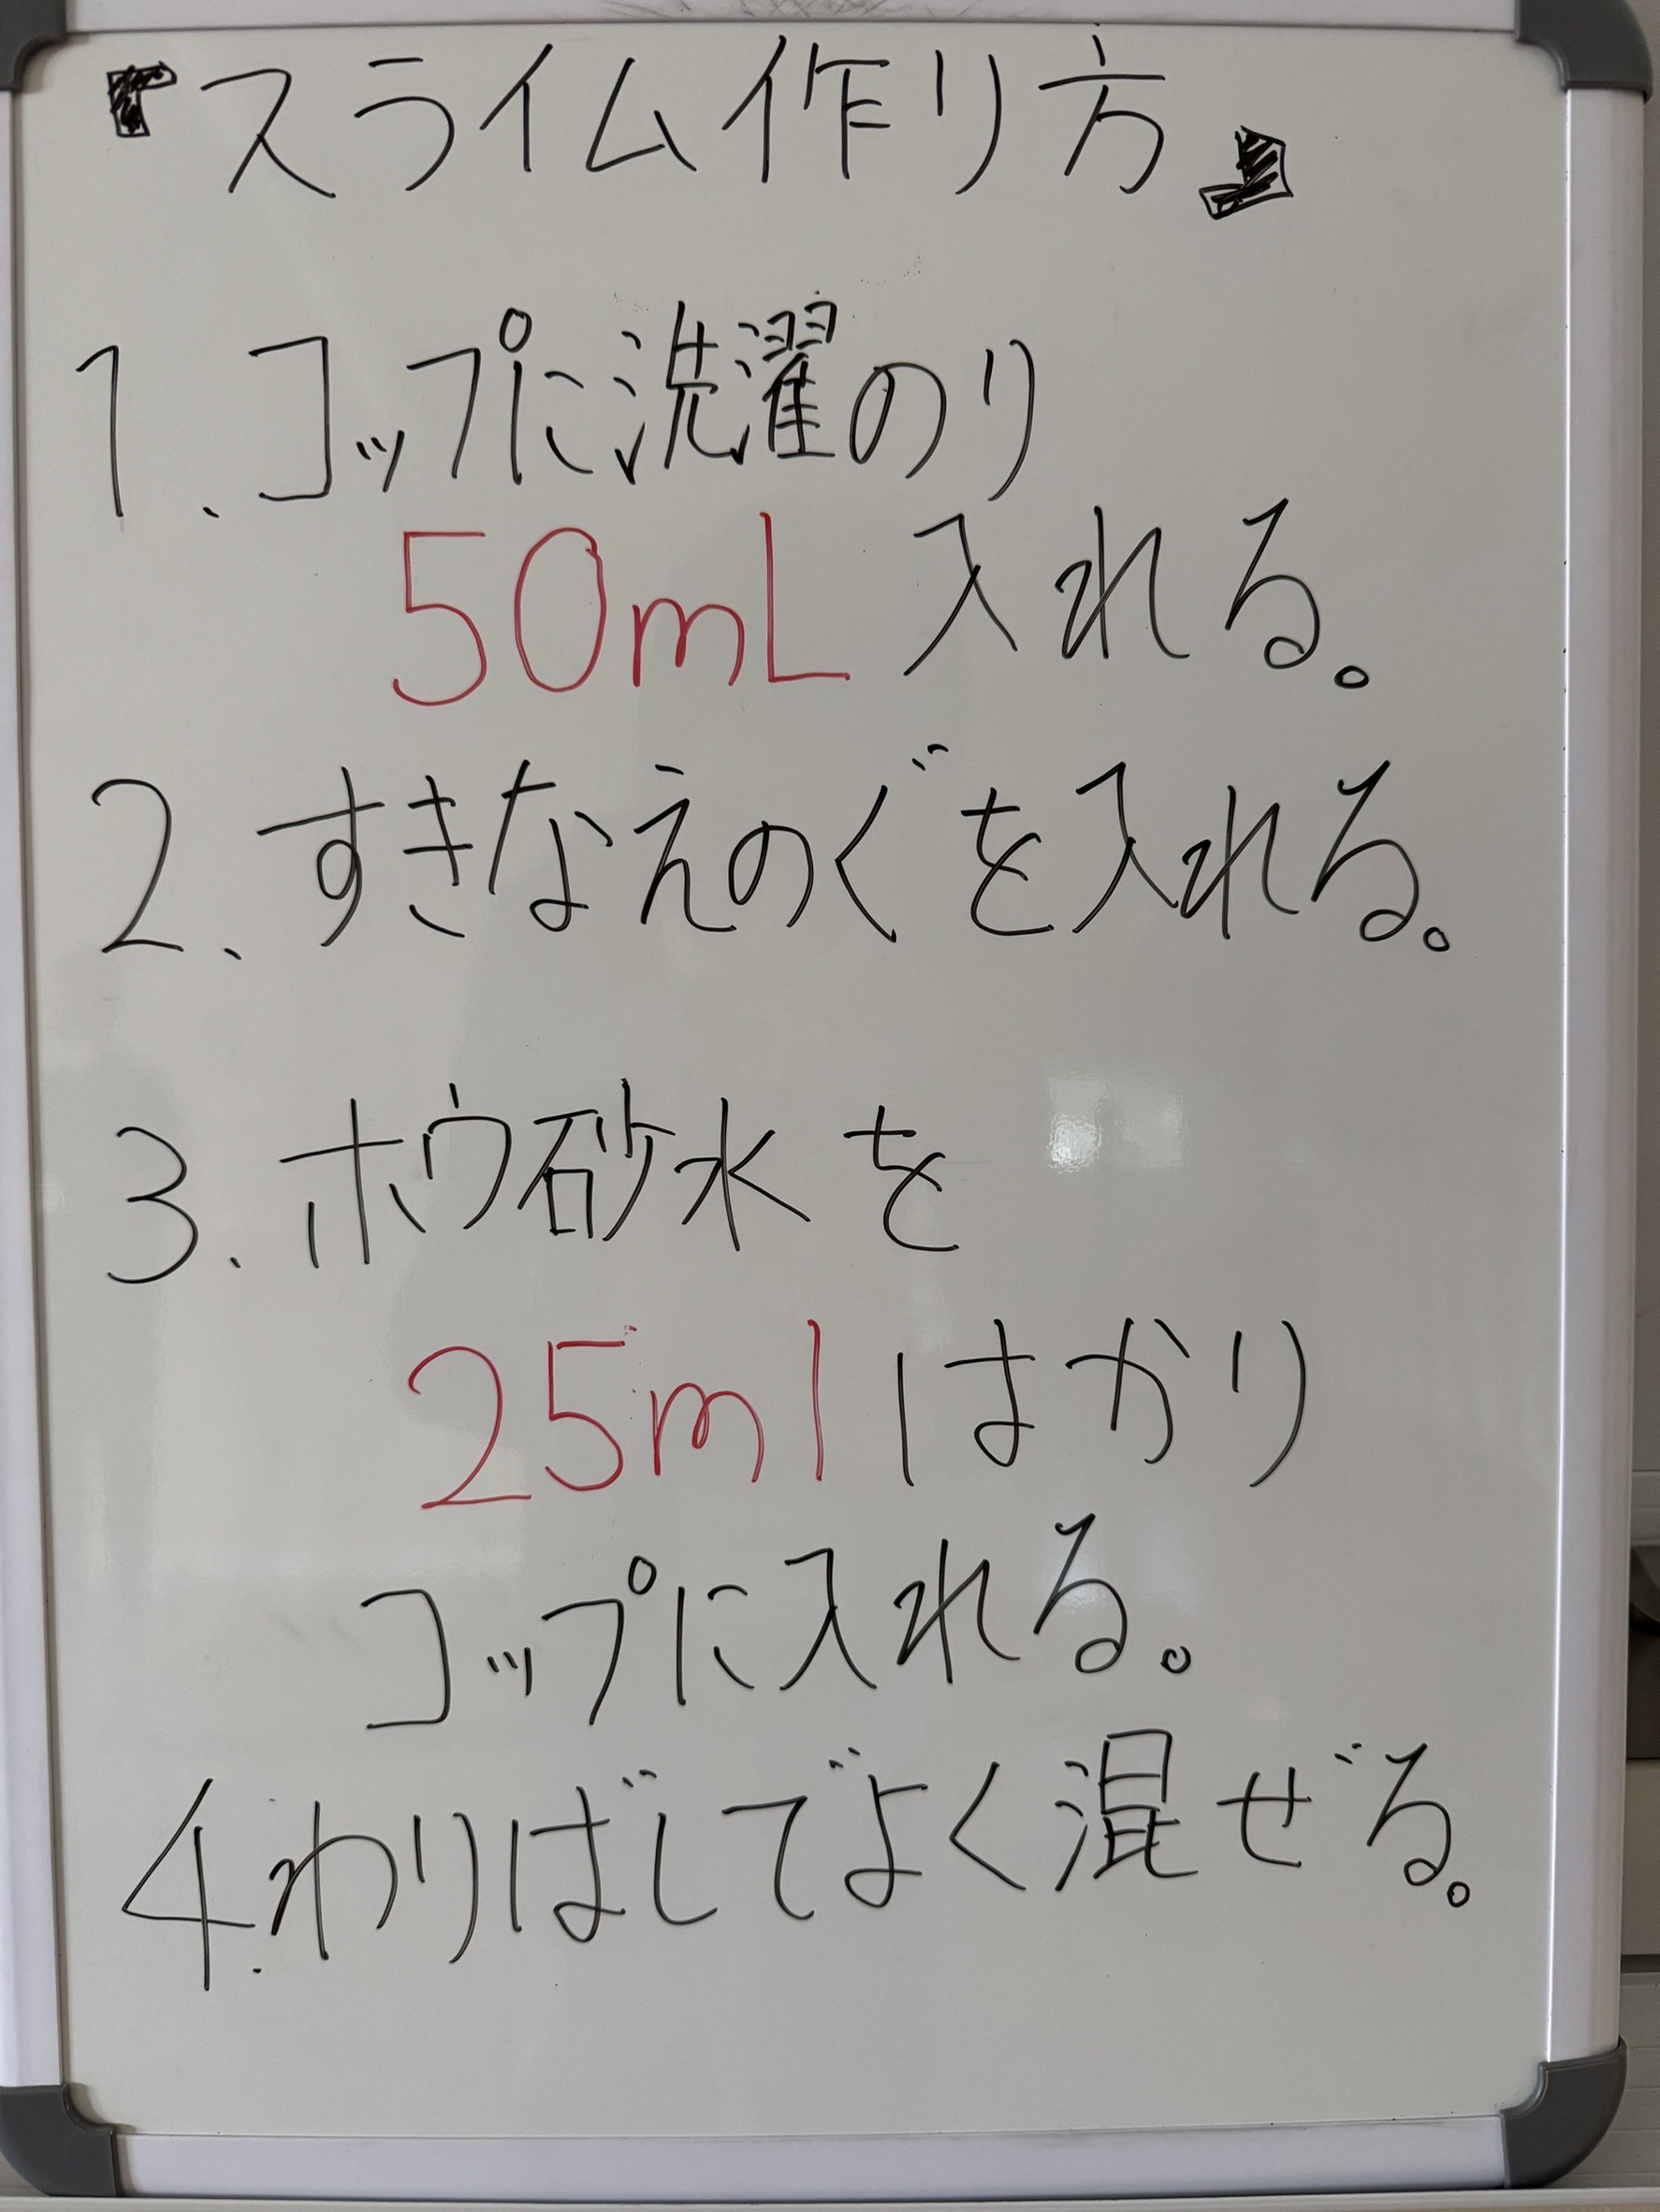 【スライム作り方】
1、コップに洗濯のり
50mL入れる。
2、すきなえのぐを入れる。
3、ホウ砂水を
25mlはかり
コップに入れる。
4、わりばしでよく混ぜる。